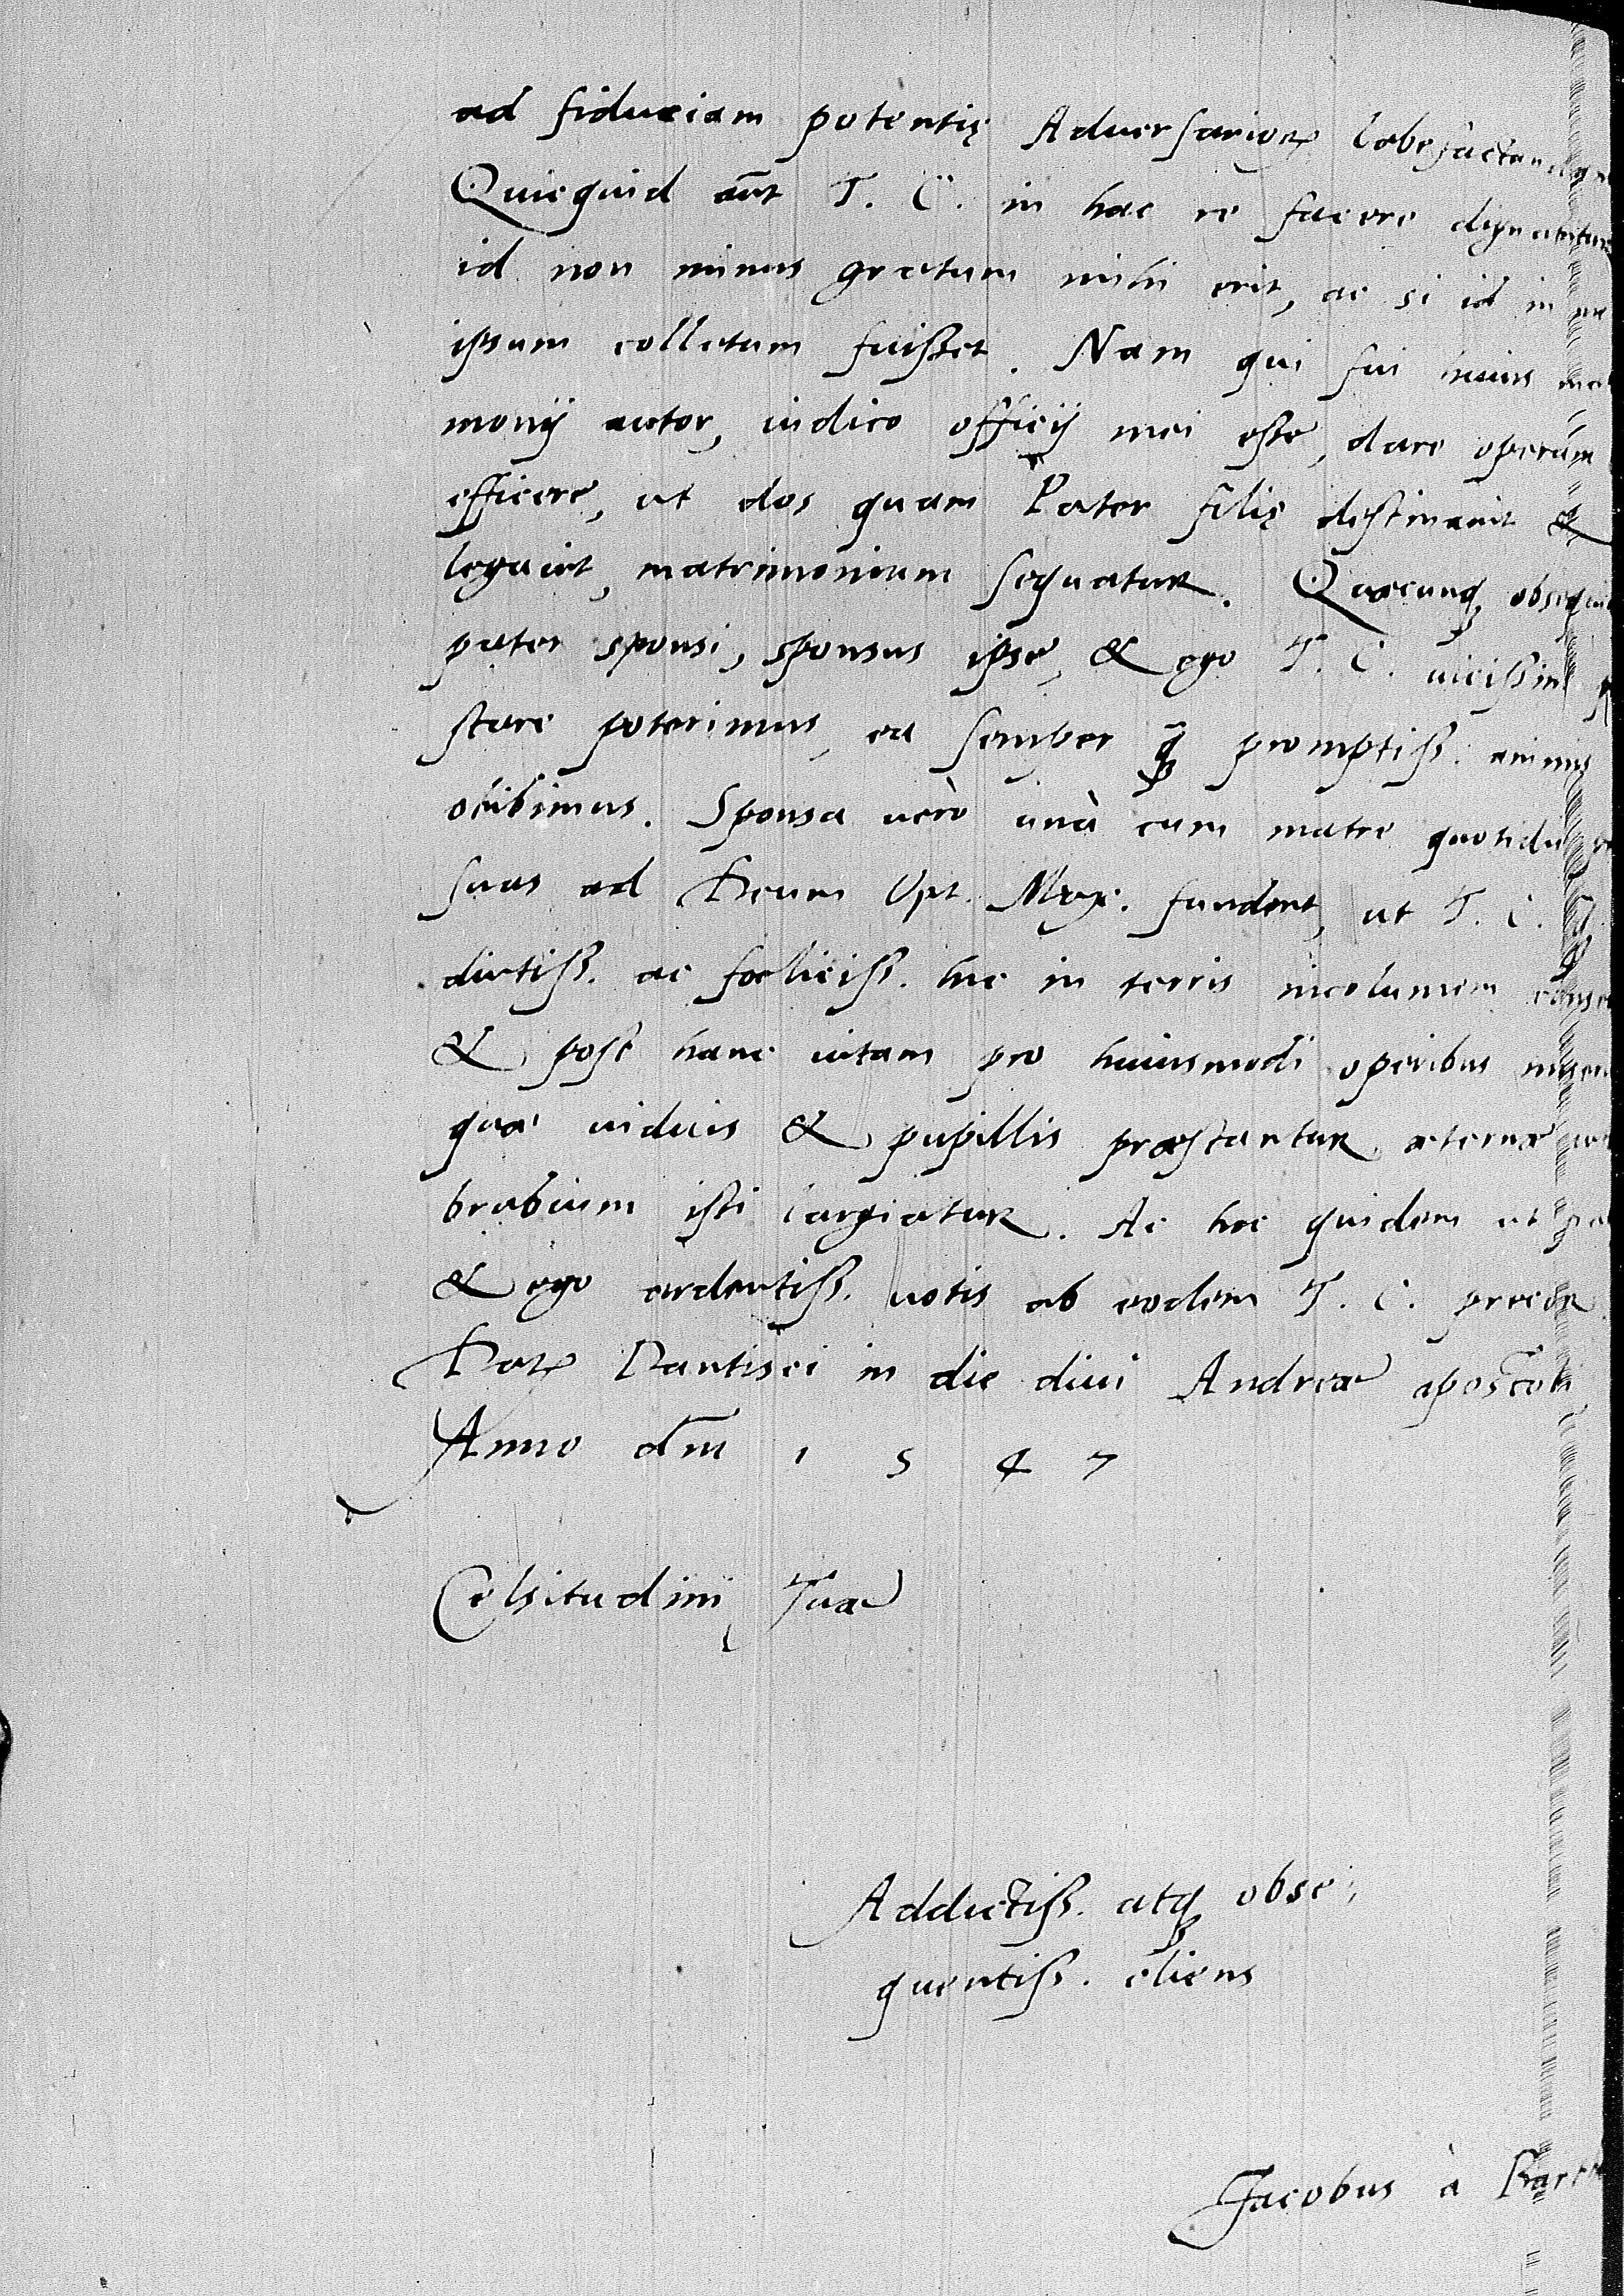 ad fiduciam potentię Aduersarioꝝ labefactandam
Quicquid aūt T. C. in hac re facere dignabitur
id non minus gratum mihi erit, ac si id in me
ipsum collatum fuisset. Nam qui fui huius
monij autor, iudico officij mei esse, dare operam
efficere, ut dos quam Pater filię destinauit &
legauit, matrimonium sequatur. Quæcunqꝫ
pater sponsi, sponsus ipse, & ego T. C. uicissim
stare poterimus, ea semper promptiss.
obibimus. Sponsa uerò unà cum matre
suas ad Deum Opt. Max. fundent, ut T. C.
diutiss. ac fœliciss. hic in terris incolumem
& post hanc uitam pro huiusmodi operibus
quæ uiduis & pupillis præstantur æternæ
brabium isti largiatur. Ac hoc quidem ut
& ego ardentiss. uotis ab eodem T. C. precor
Datꝝ Dantisci in die diui Andreæ apostoli
Anno dm̄ 1 5 4 7
Celsitudini Tuæ
Addictiss. atqꝫ obse
quentiss. cliens
Jacobus à